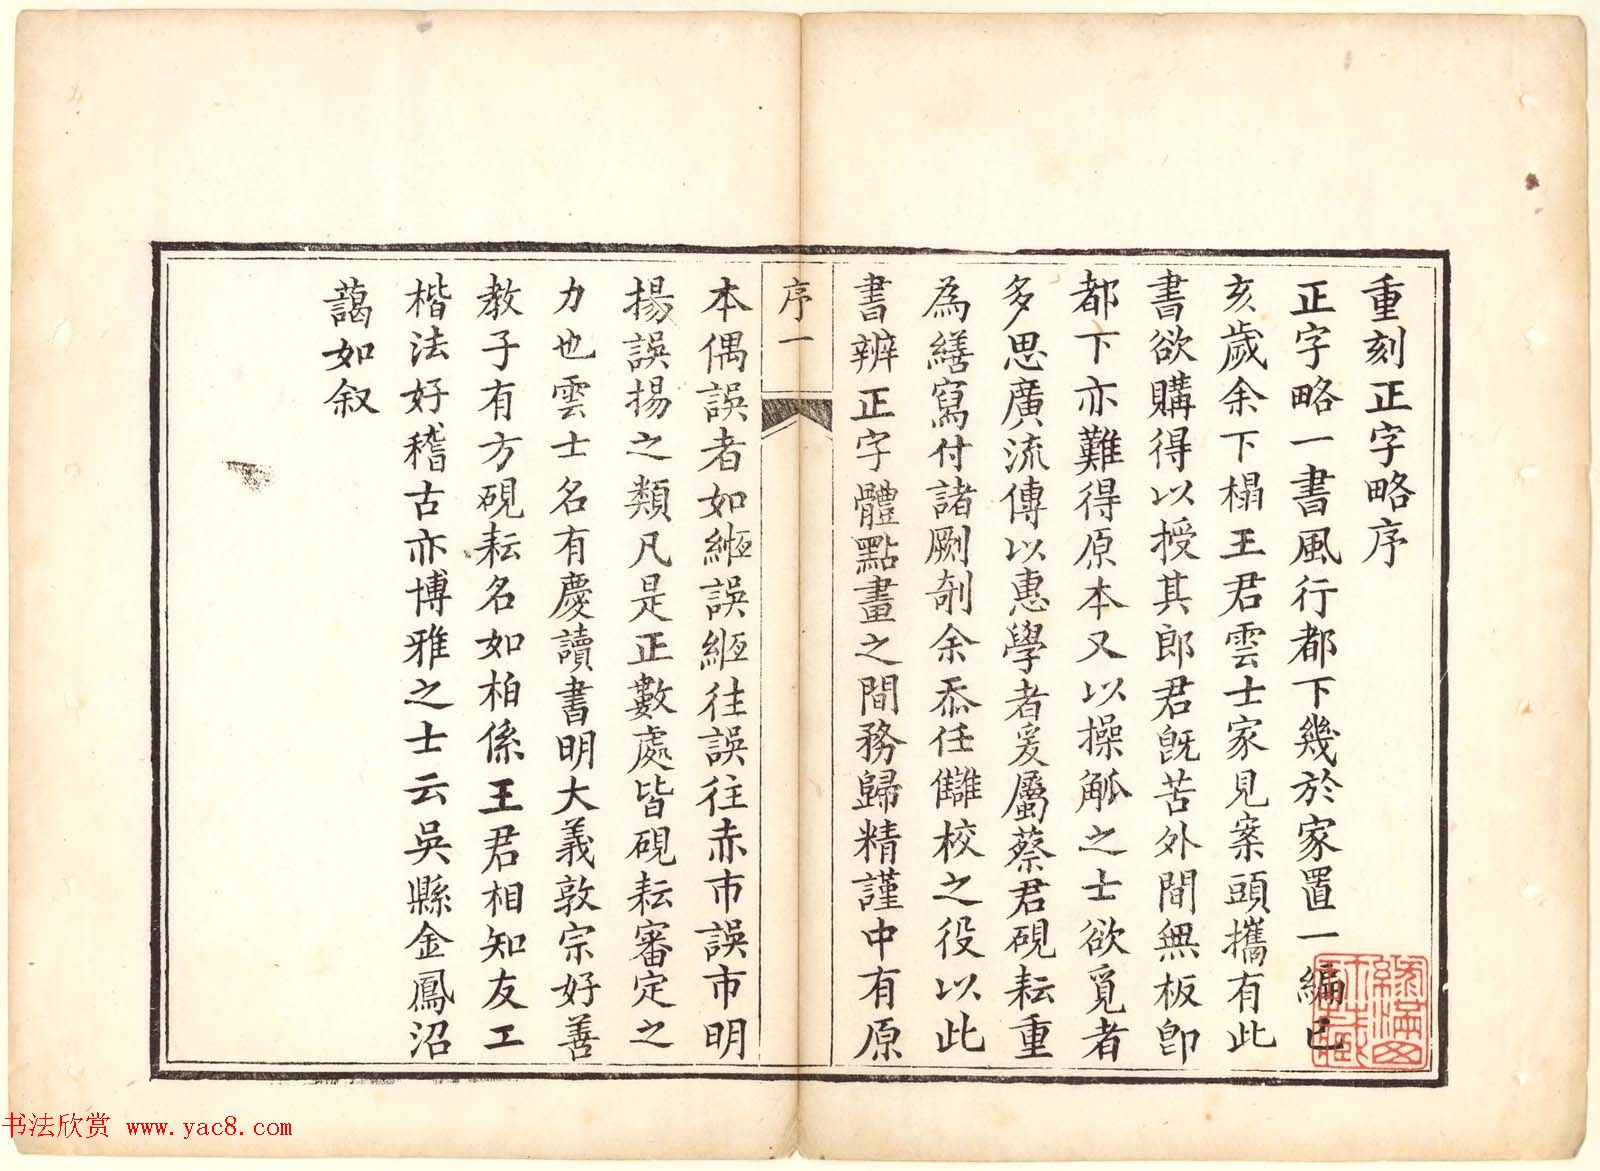 重刻正字略序
正字略一書風行都下幾於家置一編已
亥歲余下榻王君雲士家見案頭攜有此
書欲購得以授其郎君旣苦外間無板卽
都下亦難得原本又以操觚之士欲覓者
多思廣流傳以惠學者爰屬蔡君硯耘重
為繕寫付諸劂剞余忝任讎校之役以此
書辨正字體點畫之間務歸精謹中有原
序一
本偶誤者如緪誤絚徃誤往赤巿誤市明
揚誤揚之類凡是正數處皆硯耘審定之
力也雲士名有慶讀書明大義敦宗好善
教子有方硯耘名如柏係王君相知友工
楷法好稽古亦博雅之士云吳縣金鳳沼
藹如叙
书法欣赏 www.yac8.com